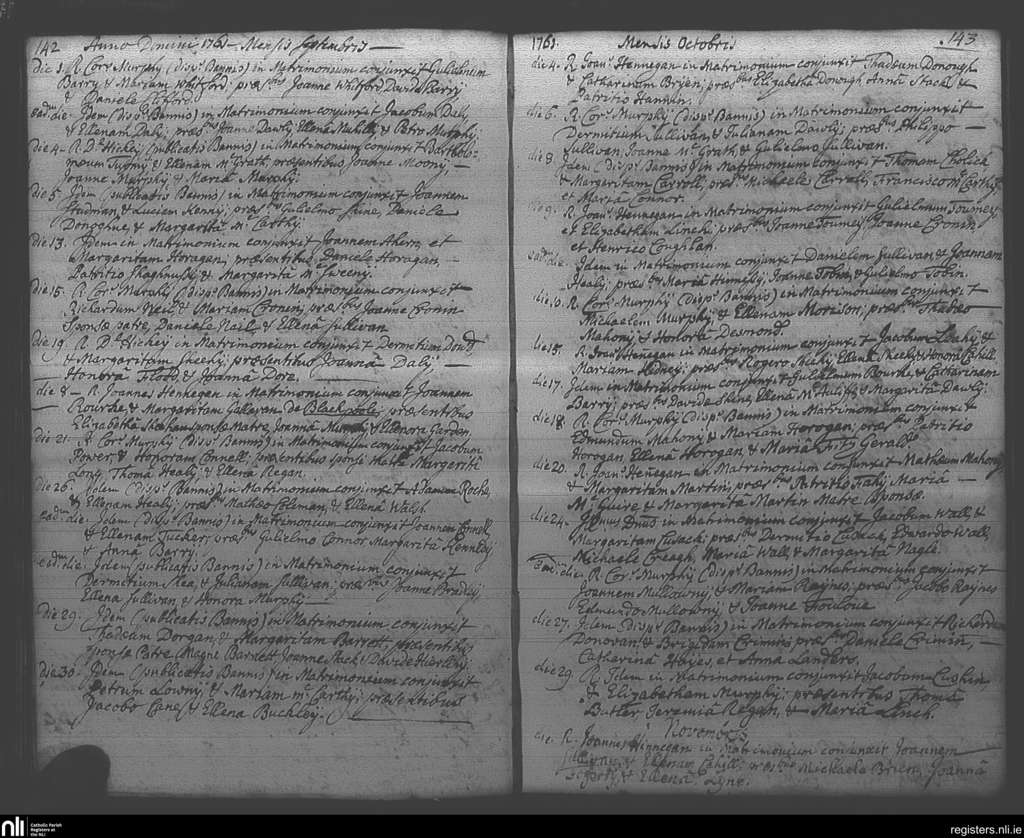 142 Anno Domini 1761 - Mensis Septembris -
die 1. R. Corn. Murphy (disp.s Bannis) in Matrimonium conjunxit Gulielmum
Barry & Mariam Whitford: præs.bus Joanne Whitford Davide Berry
& Daniele
ead.m die. Idem (disp.s Bannis) in Matrimonium conjunxit Jacobum Daly,
& Ellenam Daly; præs. Dawly, Ellenâ & Petro Murphy.
die 4. R. D.s Hickey (publicatis Bannis) in Matrimonium conjunxit Bartholo=
mæum & Ellenam M.cGrath, præsentibus Joanne Moony, -
Joanne Murphy & Mariâ Murphy.
die 5. Idem (publicatis Bannis) in Matrimonium conjunxit Joannem
Studman & Luciem Keniy, præs. Gulielmo Daniele
Donoghue, & Margaritâ M.cCarthy.
die 13. Idem in Matrimonium conjunxit Joannem Ahern, et
Margaritam Horagan, præsentibus Daniele Horagan, -
Patritio & Margaritâ M.cSweeny.
die 15. R. Cor.s Murphy (disp.s Bannis) in Matrimonium conjunxit
Richardum Neil, & Mariam Cronin; præs.bus Joanne Cronin
Sponsæ patre, Daniele Neil, & Ellenâ Sullivan
die 19. R. D.s Hickey in Matrimonium conjunxit Dermitium
& Margaritam Sheehy, præsentibus Joannâ Daly, -
Honorâ Flood, & Joannâ Dore.
die 8 - R. Joannes Hennegan in Matrimonium conjunxit Joannem
Rourke, & Margaritam de Blackpole, præsentibus
Elizabethâ Sponsæ Matre, Joannâ Murphy & Elenora Garden
die 21. R. Cor.s Murphy (disp.s Bannis) in Matrimonium conjunxit Jacobum
Power, & Honoram Connell; præsentibus sponsi Matre Margeriti
Long Thomâ Healy, & Ellena Regan.
die 26. Idem (disp.s Bannis) in Matrimonium conjunxit Adamum Roche,
& Ellenam Healy; præs. Matheo Coleman, & Ellenâ Walsh.
ead.m die. Idem (disp.s Bannis) in Matrimonium conjunxit Joannem Connell
& Ellenam Tucker; præs. Gulielmo Connor Margaritâ Kennedy
& Annâ Barry.
ead.m die. Idem (publicatis Bannis) in Matrimonium conjunxit
Dermitium Shea, & Julianam Sullivan; præs. Joanne Bradly,
Ellena Sullivan, & Honora Murphy -
die 29. Idem (publicatis Bannis) in Matrimonium conjunxit
Thadeum Dorgan, & Margaritam Barrett, præsentibus
Sponsæ Patre Barrett, Joanne & Davide Hierlihy.
die 30. Idem (publicatis Bannis) in Matrimonium conjunxit
Petrum Lowny, & Mariam M.cCarthy; præsentibus
Jacobo Cane, & Ellena Buckley.
1761. Mensis Octobris 143
die 4. R. Joan.s Hennegan in Matrimonium conjunxit Thadeum Donough
& Catharinam Bryen, præs.bus Elizabetha Donough Annâ Stack &
Patritio Hannan.
die 6. R. Cor.s Murphy (disp.s Bannis) in Matrimonium conjunxit
Dermitium Sullivan, & Julianam Dawly; præs. Philippo -
Sullivan, Joanne M.cGrath, & Gulielmo Sullivan.
die 8. Idem (disp.s Bannis) in Matrimonium conjunxit Thomam
& Margaritam Carroll, præs. Michaele Carroll, Francisco M.cCarthy
et Mariâ Connor.
die 9. R. Joan.s Hennegan in Matrimonium conjunxit Gulielmum Toumey
et Elizabetham Linch; præs. Joanne Toumey, Joanne Cronin
et Henrico Coughlan.
ead.m die. Idem in Matrimonium conjunxit Danielem Sullivan, & Joannam
Healy; præs. Mariâ Joanne Tobin, & Gulielmo Tobin.
die 10. R. Cor.s Murphy (disp.s Bannis) in Matrimonium conjunxit
Michaelem Murphy, & Ellenam Morison, præs. Thadeo
Mahony & Honorâ Desmond.
die 15. R. Joan.s Henegan in Matrimonium conjunxit Jacobum Leahy, &
Mariam præs. Rogero Ellenâ & Honorâ Cahill.
die 17. Idem in Matrimonium conjunxit Gulielmum Bourke, & Catharinam
Barry; præs. Davide Ellenâ & Margaritâ Dawly.
die 18. R. Cor.s Murphy (disp.s Bannis) in Matrimonium conjunxit
Edmundum Mahony & Mariam Horogan; præs. Patritio
Horogan, Ellenâ Horogan, & Mariâ Fitz Gerald
die 20. R. Joan.s Henegan in Matrimonium conjunxit Matheum Mahony
& Margaritam Martin; præs. Patritio Mariâ -
M.cGuire & Margaritâ Martin Matre Sponsæ.
die 24. in Matrimonium conjunxit Jacobum Wall &
Margaritam Cusack; præs. Dermitio Cusack, Edvardo Wall,
Michaele Creagh, Mariâ Wall, & Margaritâ Nagle.
Ead.m die. R. Cor.s Murphy (disp.s Bannis) in Matrimonium conjunxit
Joannem Mullowny, & Mariam Raynes, præs. Jacobo Raynes
Edmundo Mullowny, & Joanne
die 27. Idem (disp.s Bannis) in Matrimonium conjunxit Richardum
Donovan, & Brigidam Crimin; præs. Daniele Crimin, -
Catharinâ Hayes, et Anna Landers.
die 29. R. Idem in Matrimonium conjunxit Jacobum
& Elizabetham Murphy; præsentibus Thomâ
Butler Jeremiâ Regan, & Mariâ Linch.
Novembris
die. R. Joannes Hinnegan in Matrimonium conjunxit Joannem
& Ellenam Cahill, præs. Michaele Brien, Joannâ
& Ellenâ Lyne.
nli Catholic Parish Registers at the NLI
registers.nli.ie